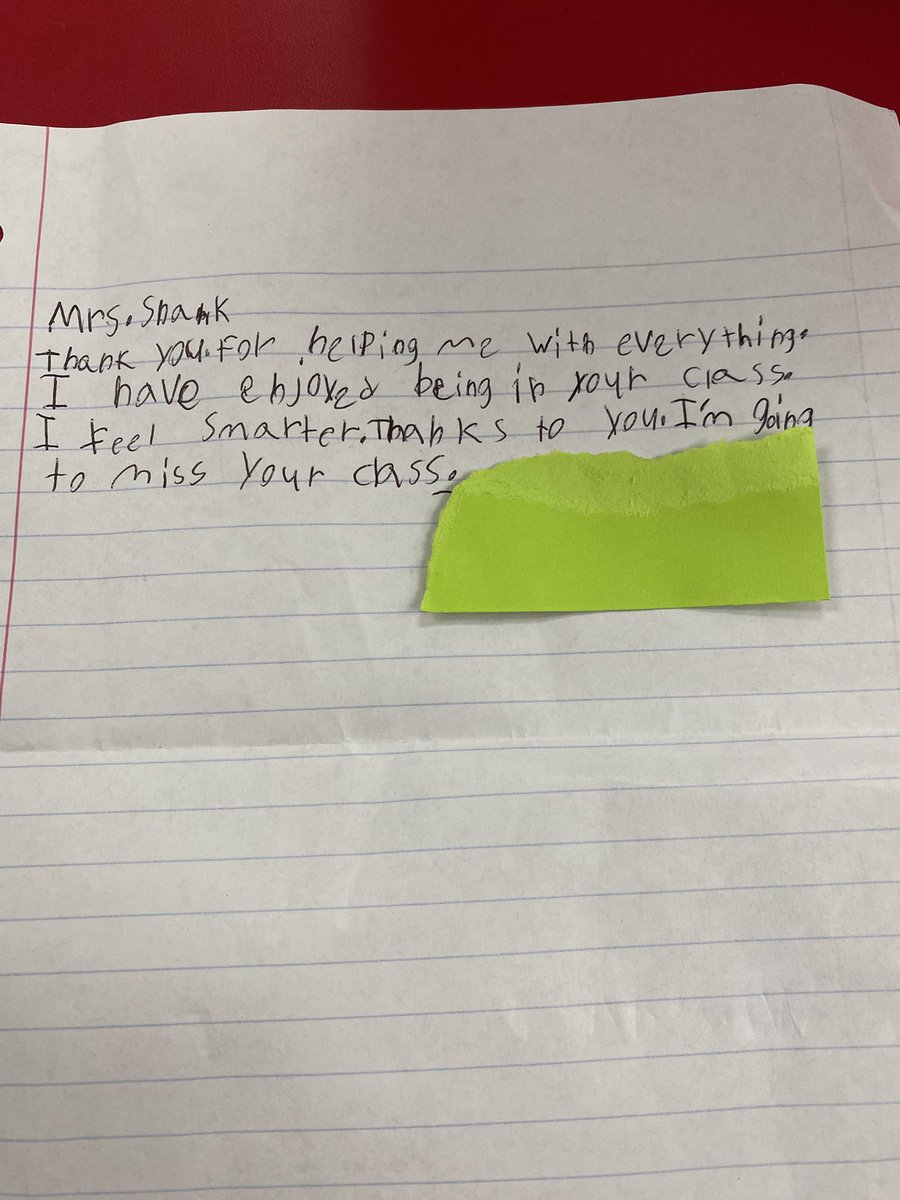 Mrs. Shank
Thank you. For helping me with everything.
I have enjoyed being in your class.
I feel Smarter. Thanks to you. I'm going
to miss your class.